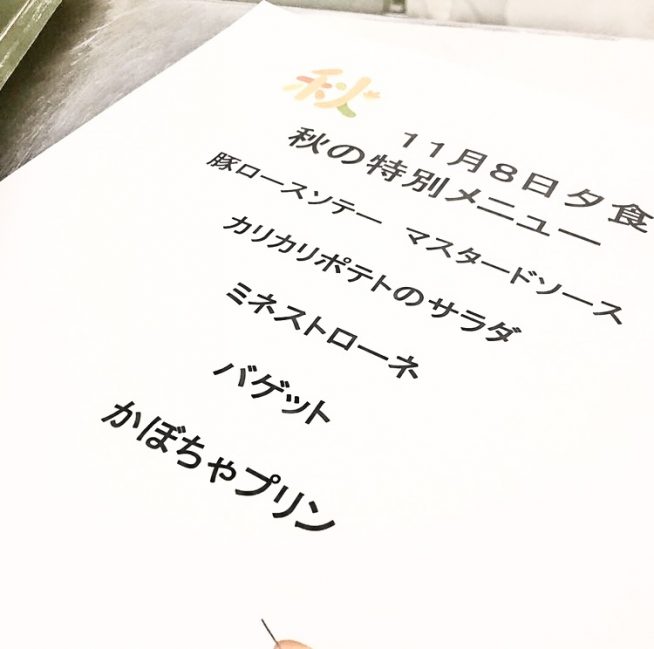 秋
11月8日夕食
秋の特別メニュー
豚ロースソテー　マスタードソース
カリカリポテトのサラダ
ミネストローネ
バゲット
かぼちゃプリン